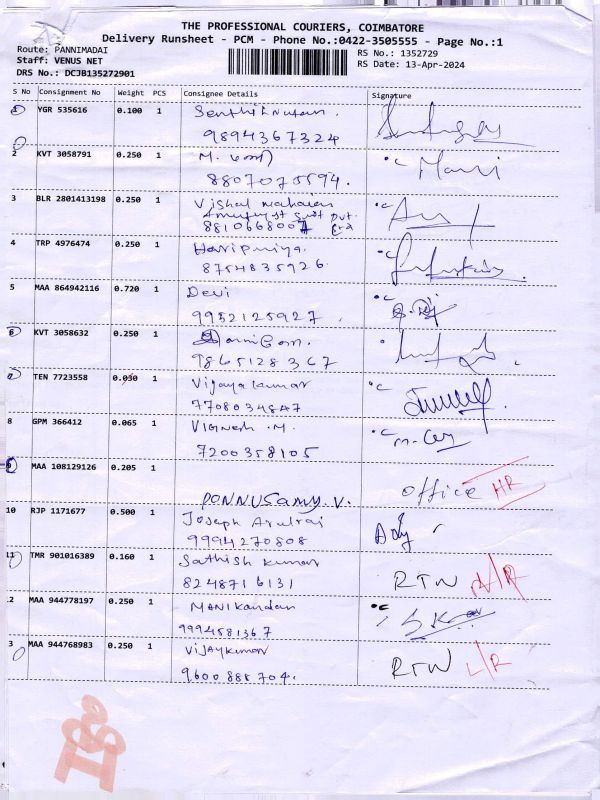 THE PROFESSIONAL COURIERS, COIMBATORE
Delivery Runsheet - PCM - Phone No.:0422-3505555 - Page No.:1
Route: PANNIMADAI
Staff: VENUS NET
DRS No.: DCJB135272901
RS No.: 1352729
RS Date: 13-Apr-2024
S No Consignment No Weight PCS Consignee Details Signature
1 YGR 535616 0.100 1 Senthilkumar.
9894367324
2 KVT 3058791 0.250 1 M.
8807075594.
3 BLR 2801413198 0.250 1 Vishal
Pvt.
8810668007
4 TRP 4976474 0.250 1 Haripriya.
8754835926
5 MAA 864942116 0.720 1 Devi
9952125927.
6 KVT 3058632 0.250 1
9865128367
7 TEN 7723558 0.030 1 Vijaya kumar
7708034847
8 GPM 366412 0.065 1 Vignesh .M.
7200358105
9 MAA 108129126 0.205 1 office HR
PONNUSAMY.V.
10 RJP 1171677 0.500 1 Joseph Arulraj
9994270808
11 TMR 901016389 0.160 1 Sathish kumar RTN
8248716131
2 MAA 944778197 0.250 1 Manikandan
9994581367
3 MAA 944768983 0.250 1 Vijaykumar RTN L/R
9600888704.